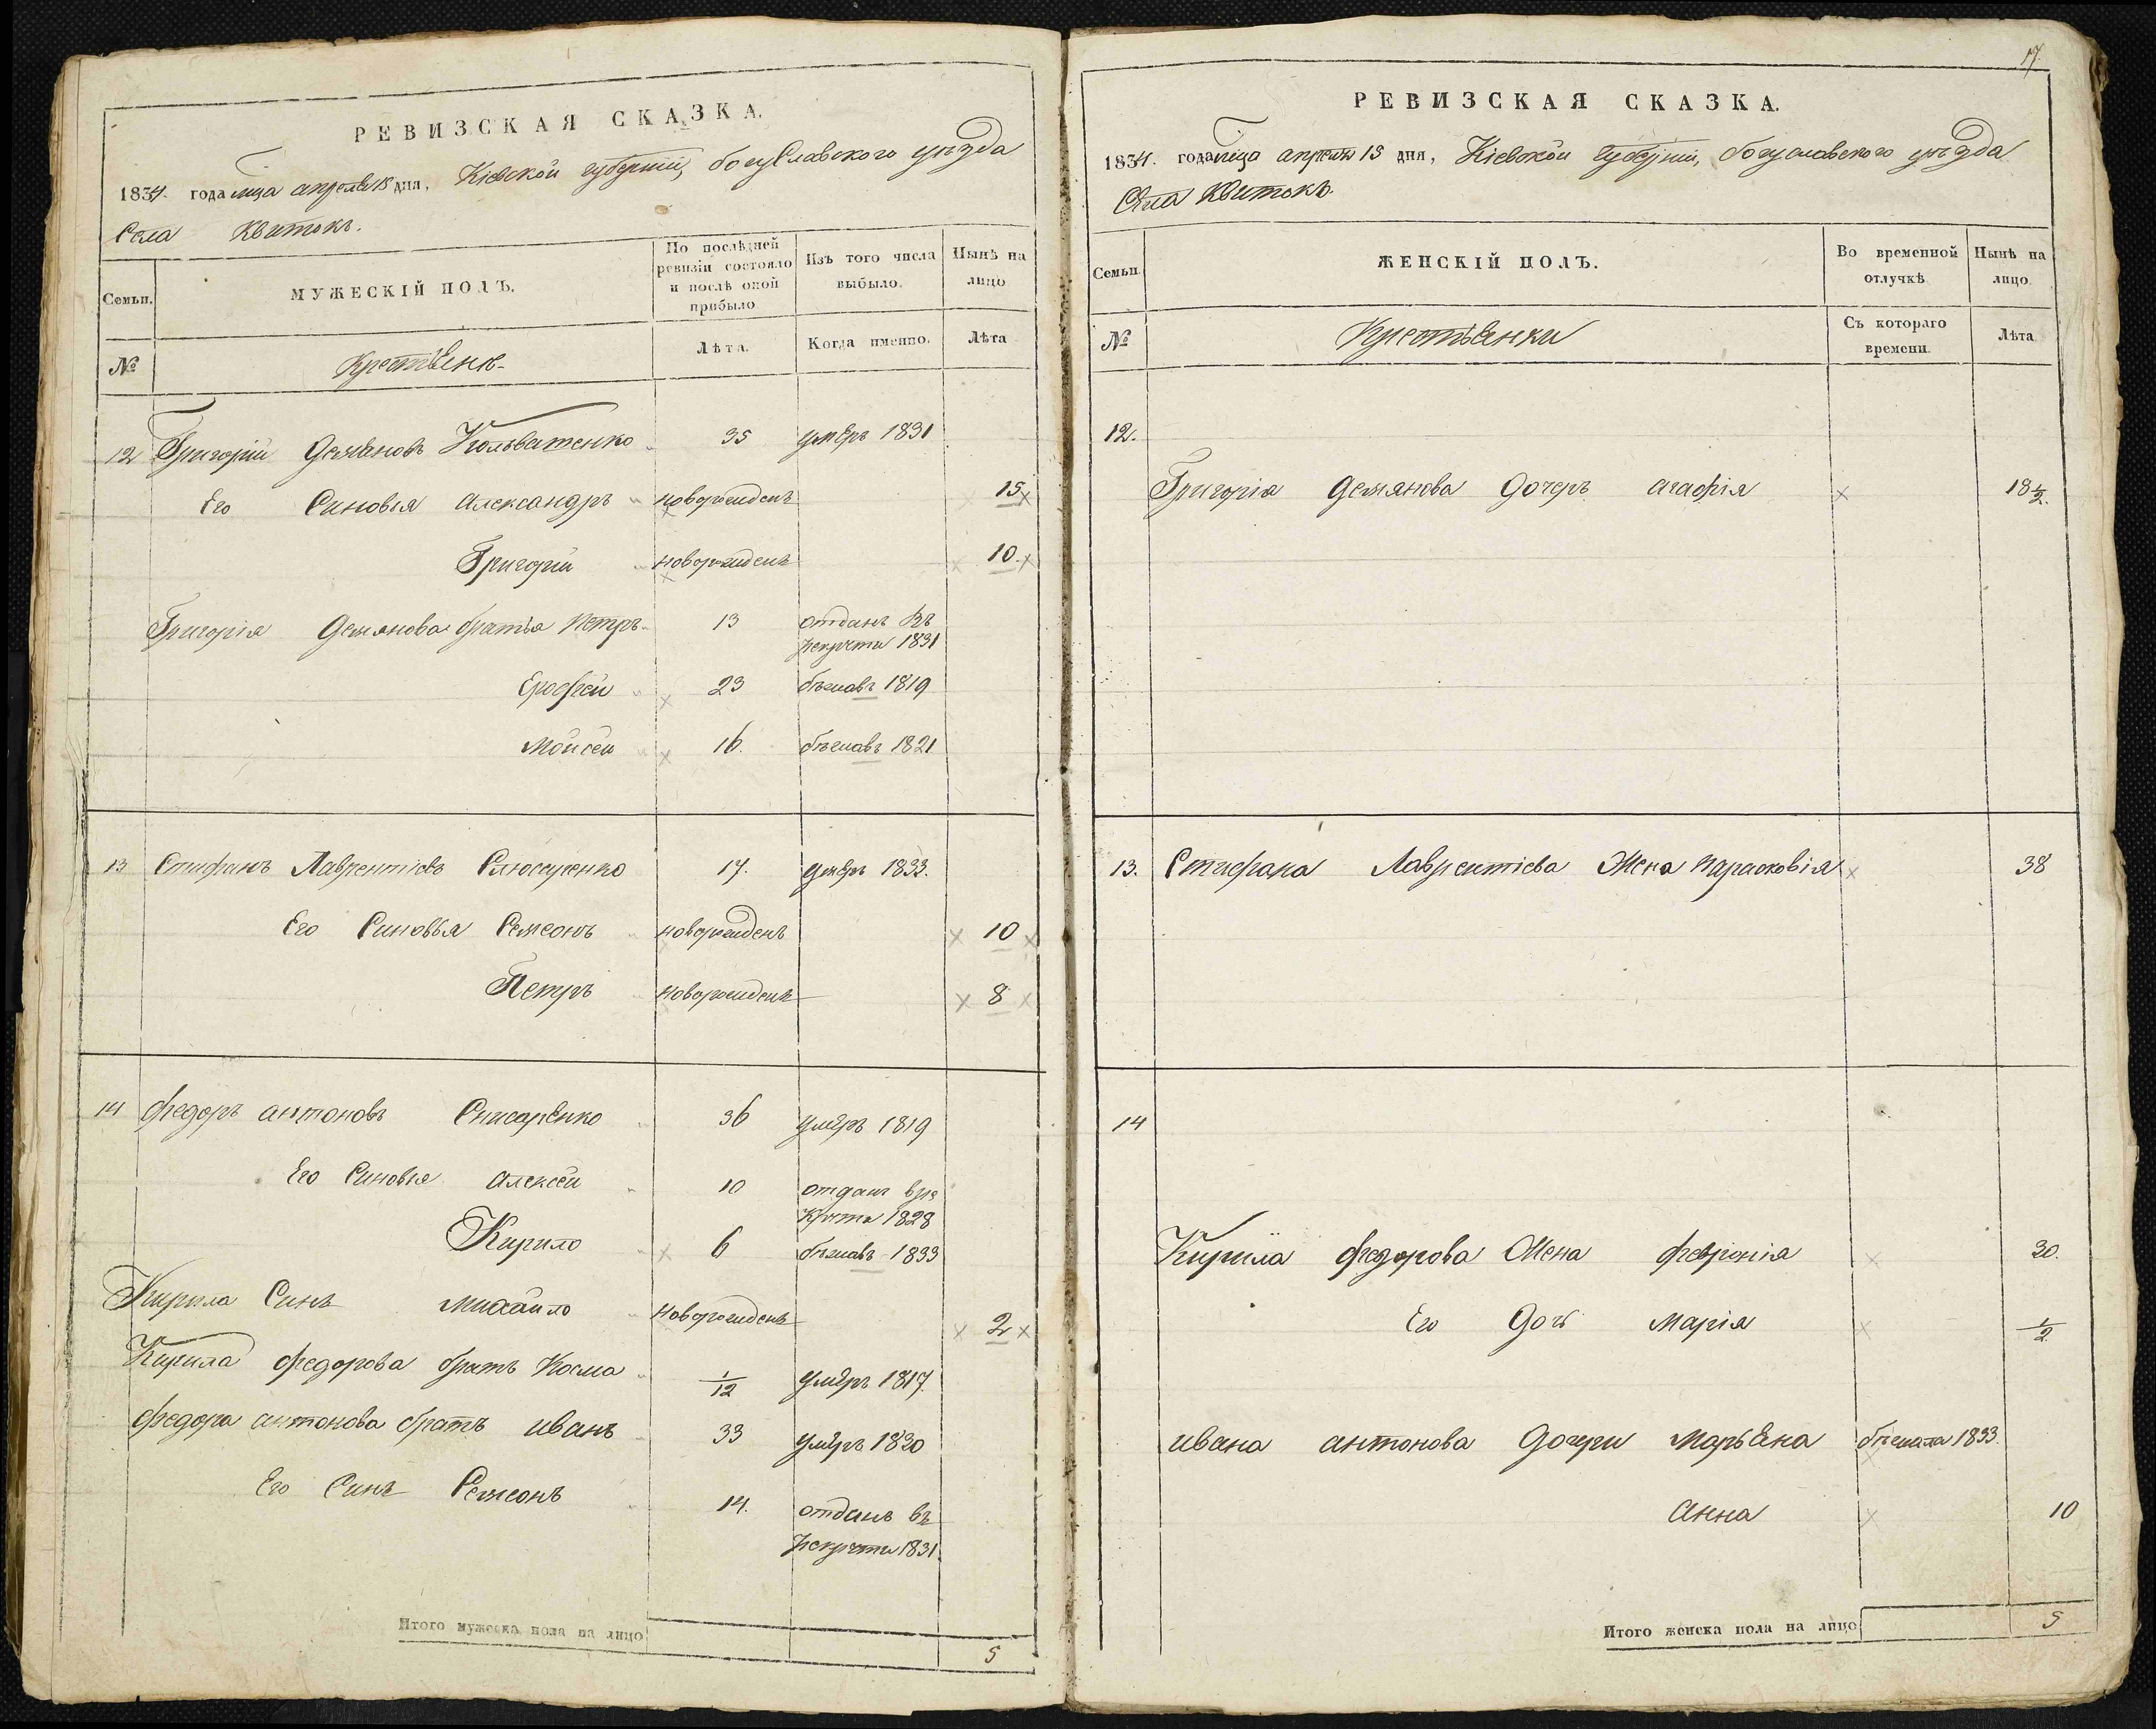 РЕВИЗСКАЯ СКАЗКА.
1834. года мца апреля 15 дня, Кіевской губерніи, богуславского уѣзда
Села Квитокъ.
Семьи.
МУЖЕСКІЙ ПОЛЪ.
По послѣдней ревизіи состояло и послѣ оной прибыло
Изъ того числа выбыло.
Нынѣ на лицо
№
Крестьяне
Лѣта.
Когда именно.
Лѣта
12 Григорій Демяновъ 35 умеръ 1831
Его Синовья Александръ новорожденъ 15
Григорій новорожденъ 10.
Григорія Демянова братья Петръ 13 отданъ въ
рекруты 1831
Ерофей 23 бѣжавъ 1819
Мойсей 16. бѣжавъ 1821
13 Стефанъ Лаврентіевъ 17. умеръ 1833.
Его Синовья Семіонъ новорожденъ 10
Петръ новорожденъ 8
14 Федоръ антоновъ Снисаренко 36 умеръ 1819
Его Синовья алексей 10 отданъ вре
круты 1828
Кирило 6 бѣжавъ 1833
Кирила Синъ Михайло новорожденъ 2
Кирила федорова братъ Косма 1/12 умеръ 1817
федора антонова братъ иванъ 33 умеръ 1830
Его Синъ Семіонъ 14. отданъ въ
рекруты 1831.
Итого мужеска пола на лицо
5
17.
РЕВИЗСКАЯ СКАЗКА.
1834. года мца апреля 15 дня, Кіевской губерніи, богуславского уѣзда
Села Квитокъ.
Семьи
ЖЕНСКІЙ ПОЛЪ.
Во временной отлучкѣ
Нынѣ на лицо.
№
Крестьянки
Съ котораго времени.
Лѣта
12.
Григорія Демянова Дочеръ агафія 18 1/2.
13. Стефана Лаврентіева Жена Парасковія 38
14
Кирила федорова Жена февронія 30.
Его Дочь Марія 1/2
ивана антонова Дочери Марьена бѣжала 1833.
анна 10
Итого женска пола на лицо
5